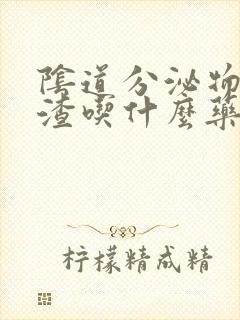 陰道分泌物
渣喫什麼藥
柠檬精成精